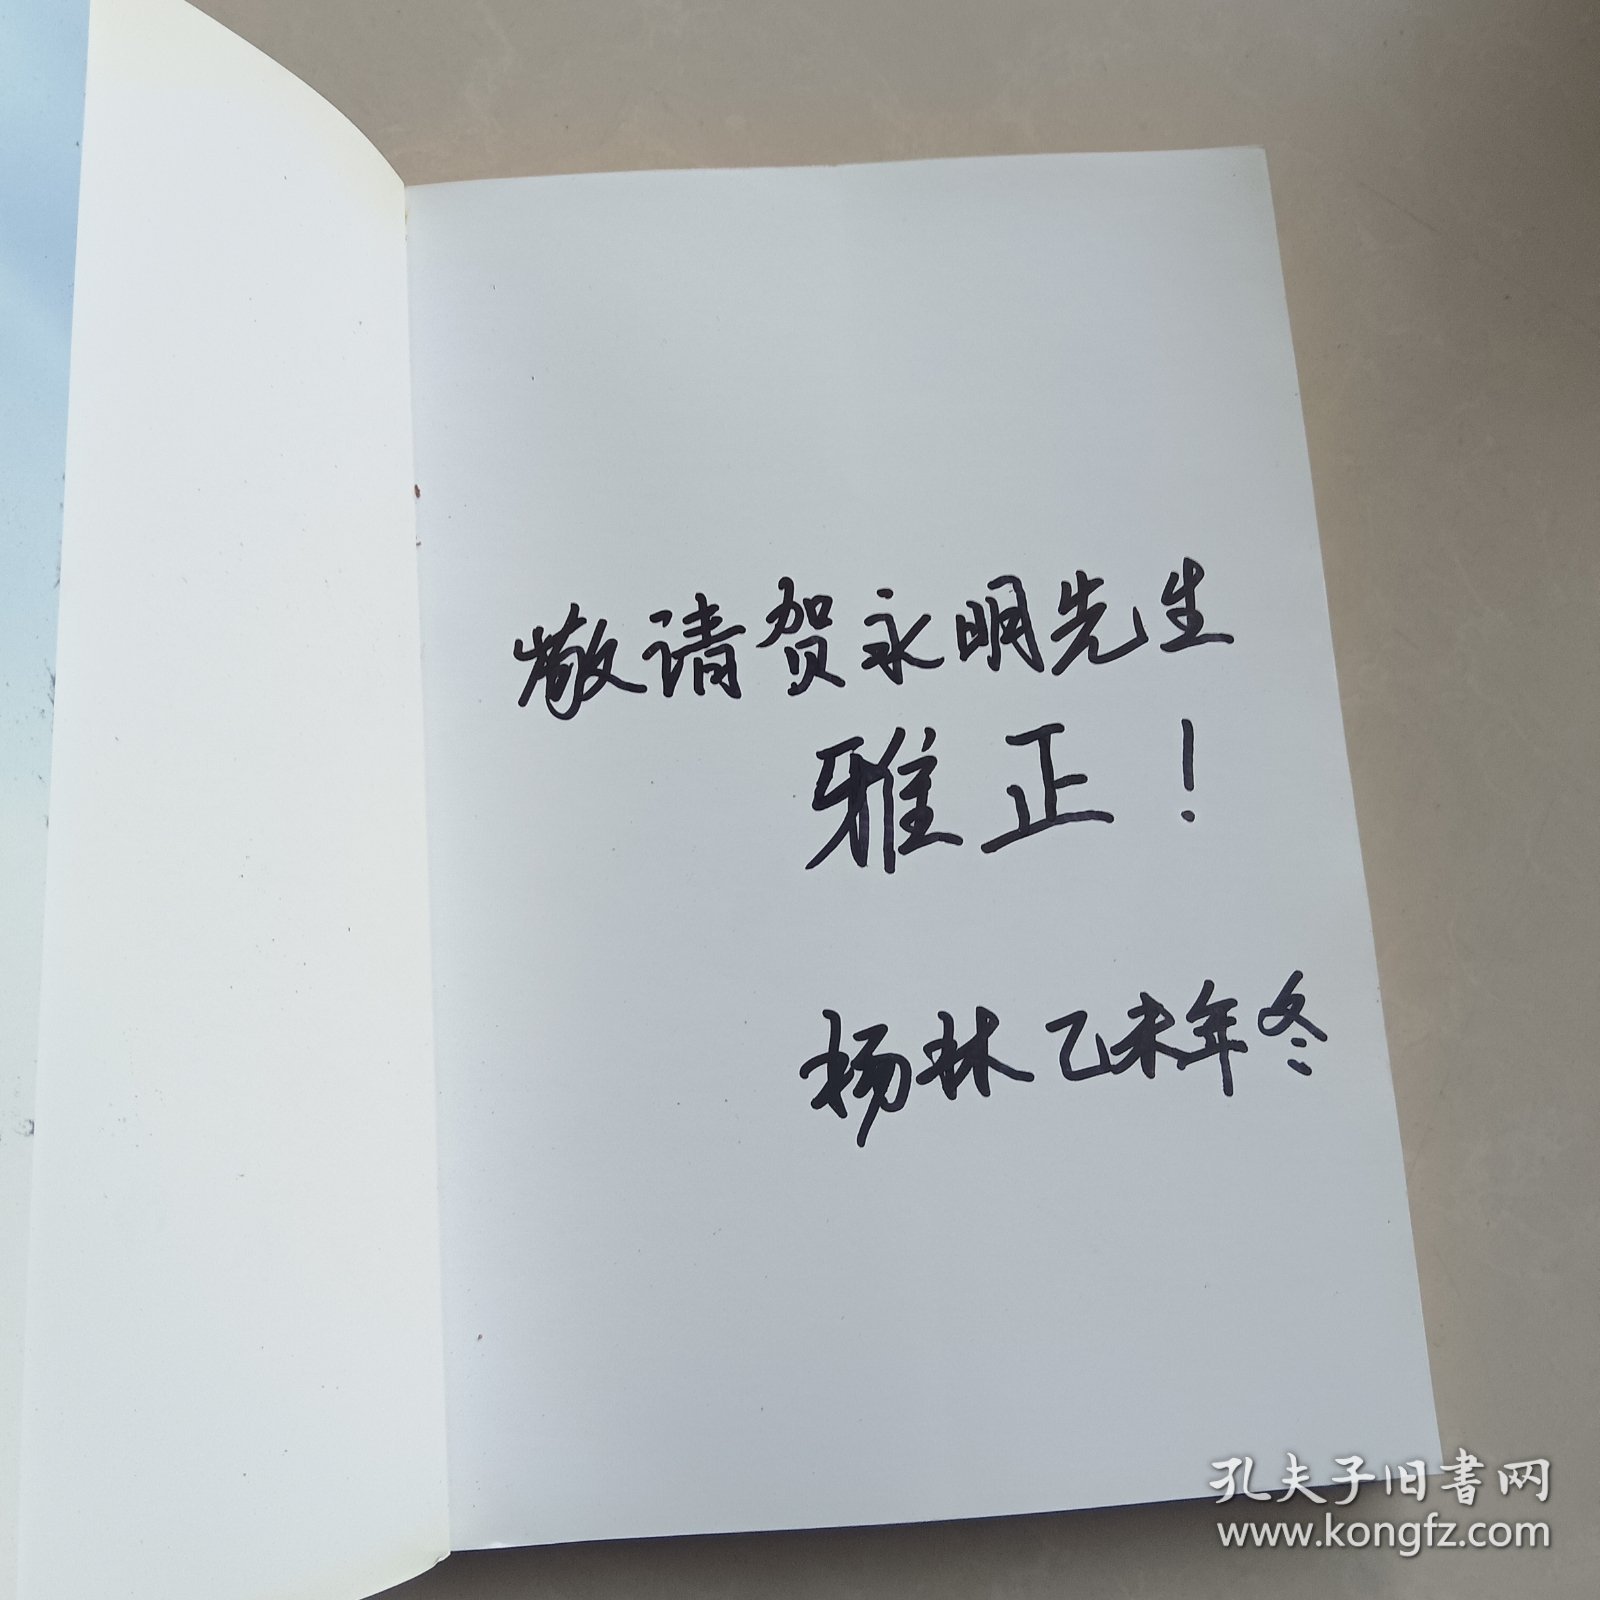 敬请贺永明先生
雅正！
杨林 乙未年冬
孔夫子旧书网
www.kongfz.com